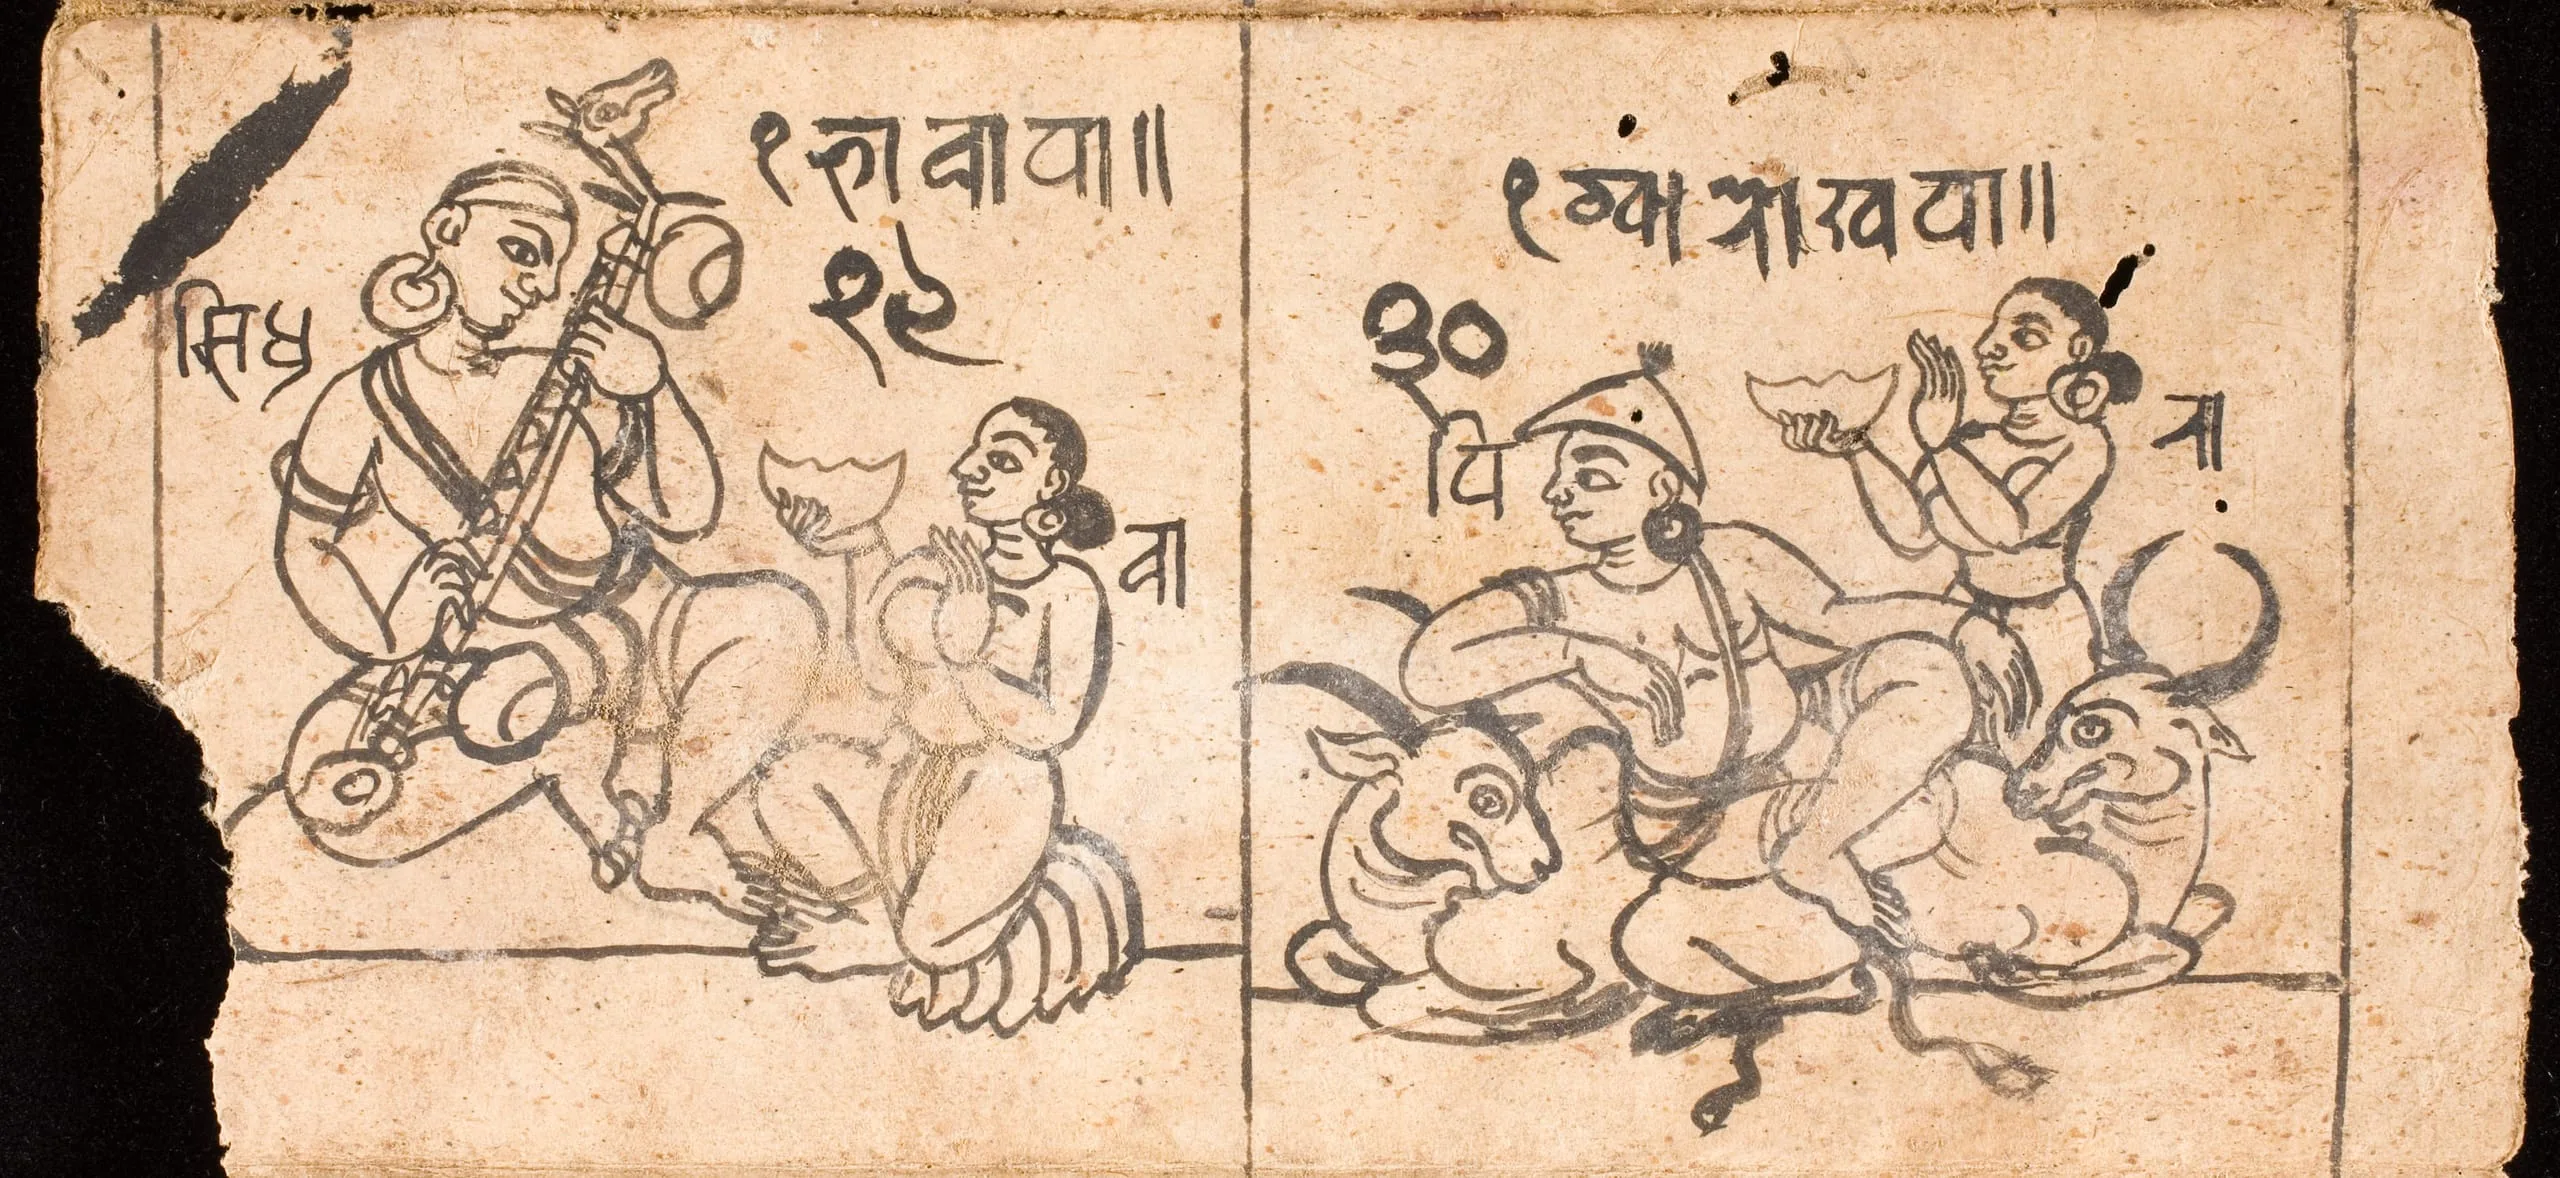 १ रुावापा॥
२९
सिध्र
वा
१ ग्वाराखपा॥
३०
पि
ना